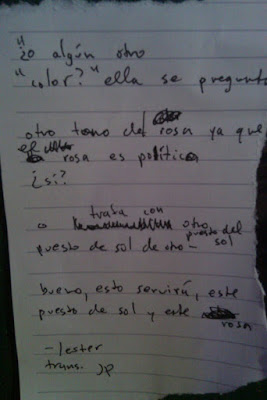 "¿o algún otro
"color?" ella se pregunta
otro tono del rosa ya que
el rosa es política
¿sí?
o trata con otro puesto del sol
puesto de sol de oto-
bueno, esto servirá, este
puesto de sol y este rosa
-lester
trans. JP